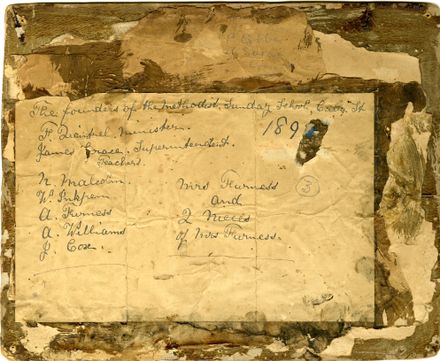 The founders of the Methodist, Sunday School, Cuba St
F. Rempel, Minister.
James Grace. Superintendent.
Teachers.
189
N. Malcolm.
W. Inkpen
A. Furness
A Williams
J. Cox.
Mrs Furness
and
2 Neices
of Mrs Furness.
3